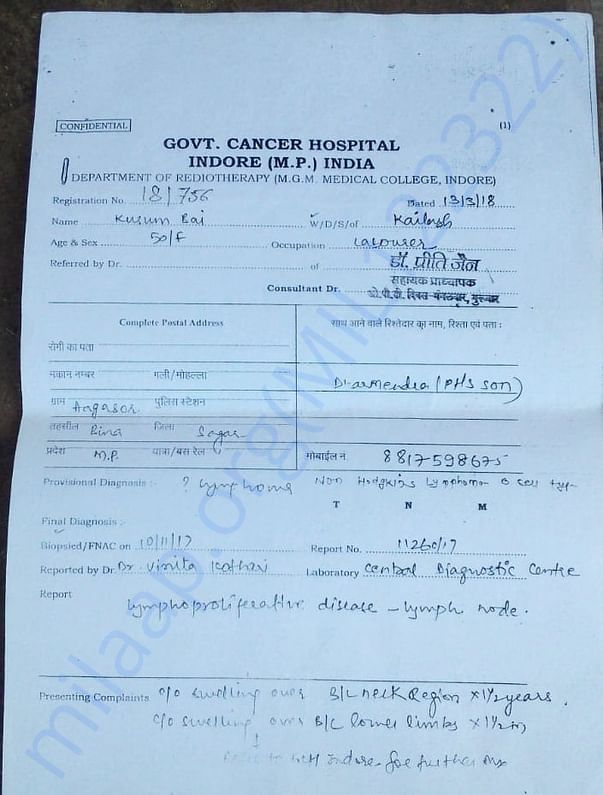 (1)
CONFIDENTIAL
GOVT. CANCER HOSPITAL
INDORE (M.P.) INDIA
DEPARTMENT OF REDIOTHERAPY (M.G.M. MEDICAL COLLEGE, INDORE)
Registration No. 18/756 Dated 13/3/18
Name Kusum Bai W/D/S/of Kailash
Age & Sex 50/f Occupation Labourer
Referred by Dr. of डॉ. प्रीति जैन
Consultant Dr. सहायक प्राध्यापक
ओ.पी.डी. दिवस मंगलवार, गुरुवार
Complete Postal Address साथ आने वाले रिश्तेदार का नाम, रिश्ता एवं पता :
रोगी का पता
मकान नम्बर गली/मोहल्ला Dharmendra (PHS SON)
ग्राम Aagasor पुलिस स्टेशन
तहसील Bina जिला Sagar
प्रदेश M.P. यात्रा/बस रेल मोबाईल नं 8817598675
Provisional Diagnosis :- ? Lymphoma Non Hodgkins Lymphoma B cell type
T N M
Final Diagnosis :-
Biopsied/FNAC on 10/11/17 Report No. 11260/17
Reported by Dr. Dr. Vinita Kothari Laboratory Central Diagnostic Centre
Report
Lymphoproliferative disease - lymph node.
Presenting Complaints c/o swelling over B/L neck Region x 1½ years.
c/o swelling over B/L lower limbs x 1½ m
Indore for further Mx
milaap.org(MIL122322)